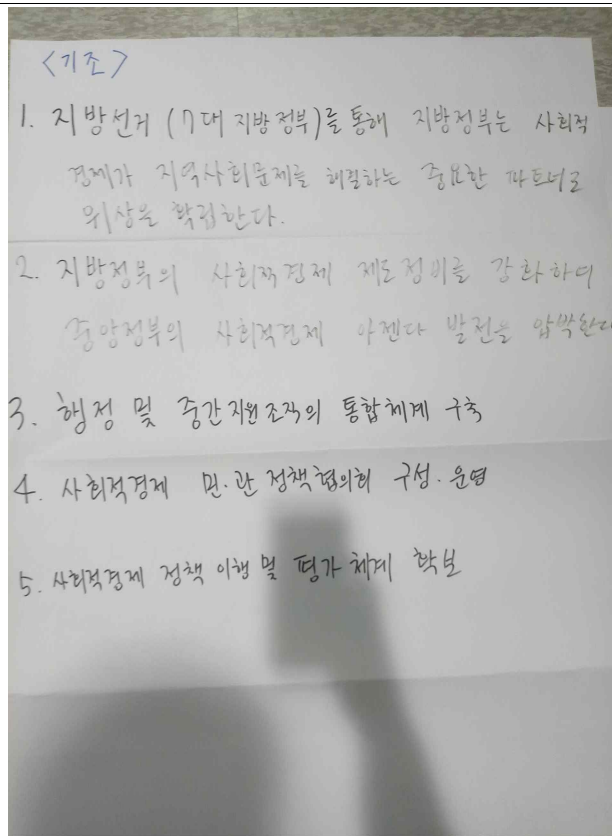 <기조>
1. 지방선거 (7대 지방정부)를 통해 지방정부는 사회적
경제가 지역사회문제를 해결하는 중요한 파트너로
위상을 확립한다.
2. 지방정부의 사회적경제 제도정비를 강화하며
중앙정부의 사회적경제 아젠다 발전을 압박한다
3. 행정 및 중간지원조직의 통합체계 구축
4. 사회적경제 민·관 정책협의회 구성·운영
5. 사회적경제 정책 이행 및 평가 체계 확보